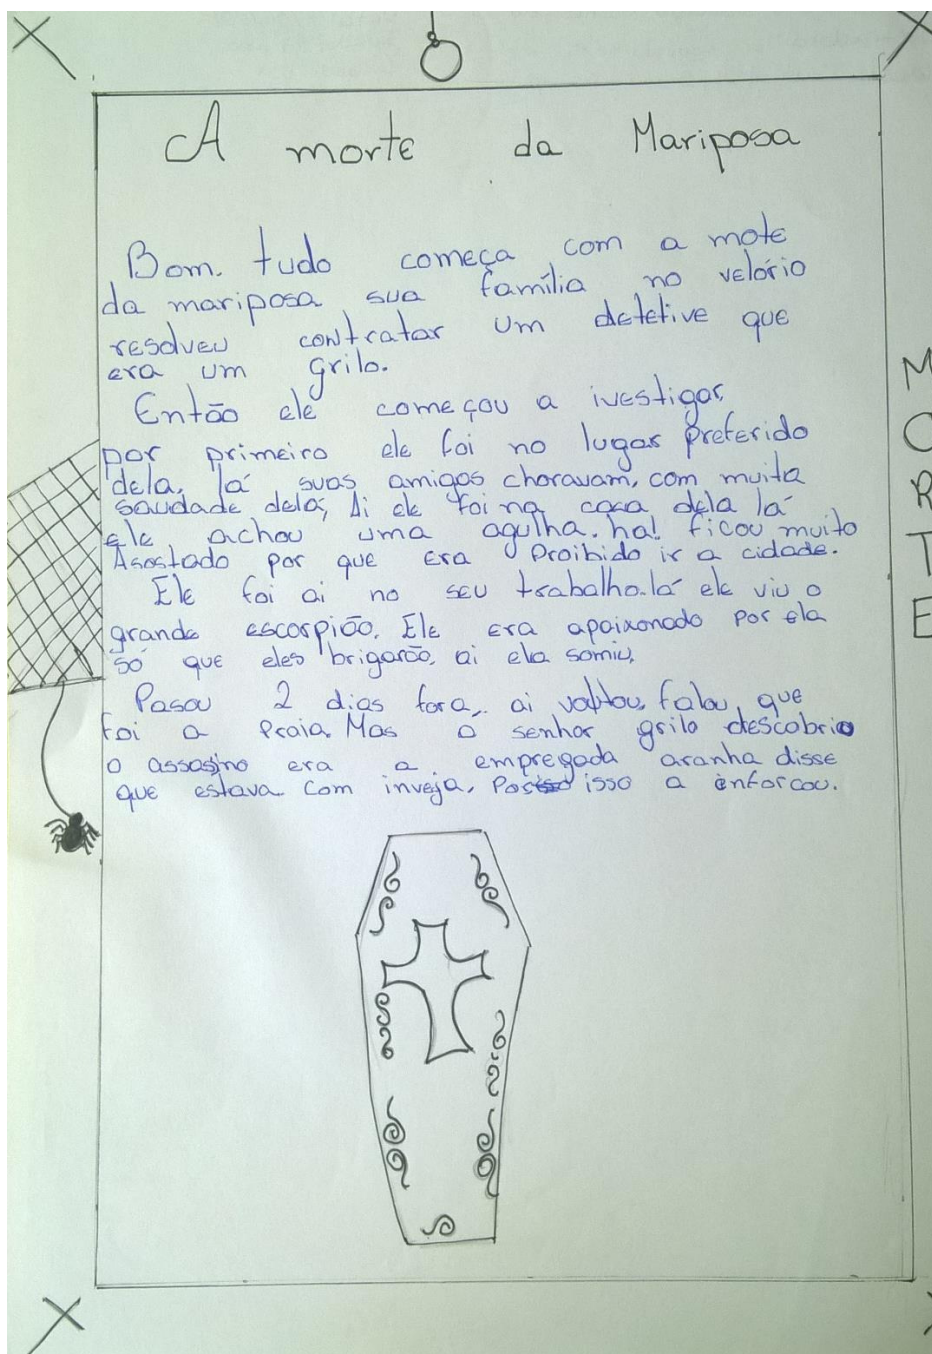 A morte da Mariposa
Bom. tudo começa com a mote
da mariposa sua família no velório
resolveu contratar um detetive que
era um grilo.
Então ele começou a ivestigar,
por primeiro ele foi no lugar preferido
dela, lá suas amigas choravam, com muita
saudade dela, Ai ele foi na casa dela lá
ele achou uma agulha. ha! ficou muito
Asostado por que era Proibido ir a cidade.
Ele foi ai no seu trabalho. lá ele viu o
grande escorpião. Ele era apaixonado por ela
só que eles brigarão, ai ela somiu,
Pasou 2 dias fora, ai voltou, falou que
foi a Praia. Mas o senhor grilo descobrio
o assasino era a empregada aranha disse
que estava com inveja, Por isso a enforcou.
MORTE